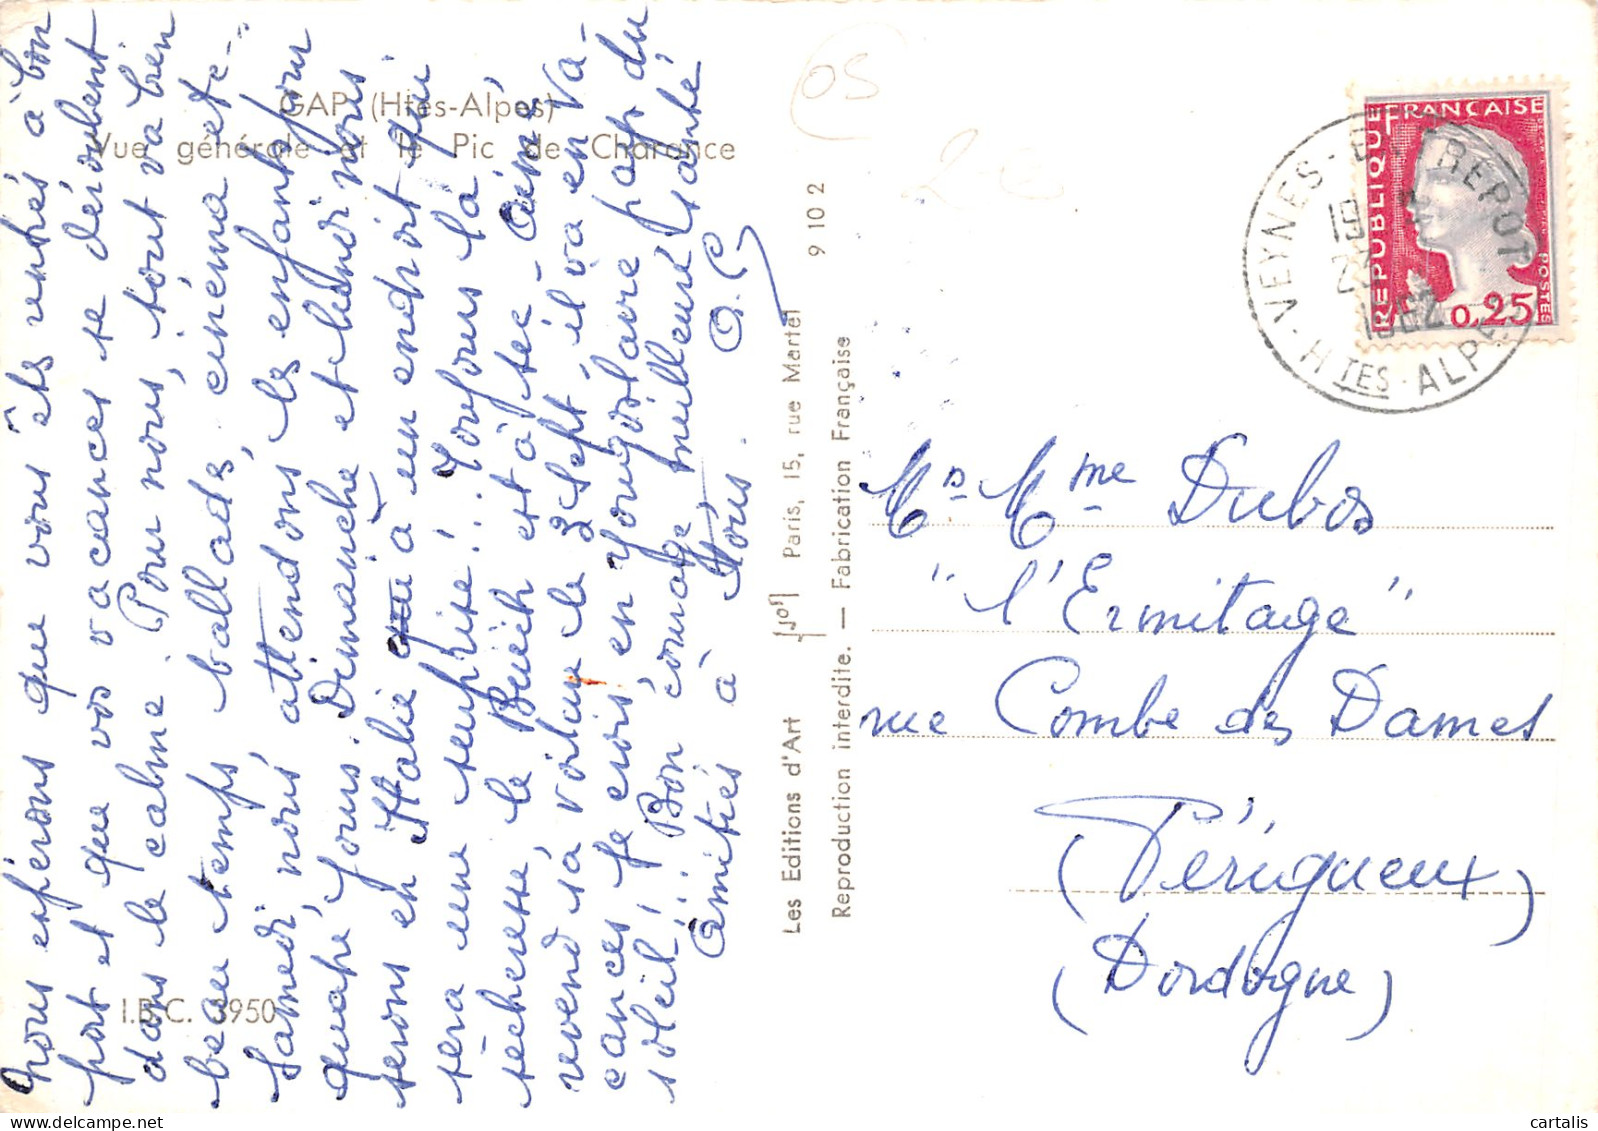 GAP (Htes-Alpes)
Vue générale et le Pic de Charance
Nous espérons que vous êtes rentrés à bon
port et que vos vacances se déroulent
dans le calme. Pour nous, tout va bien
beau temps ballads, cinéma etc...
Samedi, nous attendons les enfants pour
quatre jours. Dimanche et lundi nous
serons en Italie à un endroit qui
sera une surprise!. Toujours la
sècheresse, le Buëch est à sec. Aimé
revend sa voiture le 3 sept il va en va-
cances je crois, en Yougoslavie pays du
soleil!! Bon courage, meilleure santé
Amitiés à tous.
I.B.C. 3950
Les Editions d'Art Paris, 15, rue Martel
9 10 2
Reproduction interdite. — Fabrication Française
05
2 €
RÉPUBLIQUE FRANÇAISE
POSTES
0,25
VEYNES-EN REPOT
HTES-ALPES
19
1962
Mr Mme Dubos
"l'Ermitage"
rue Combe des Dames
(Périgueux)
(Dordogne)
cartalis